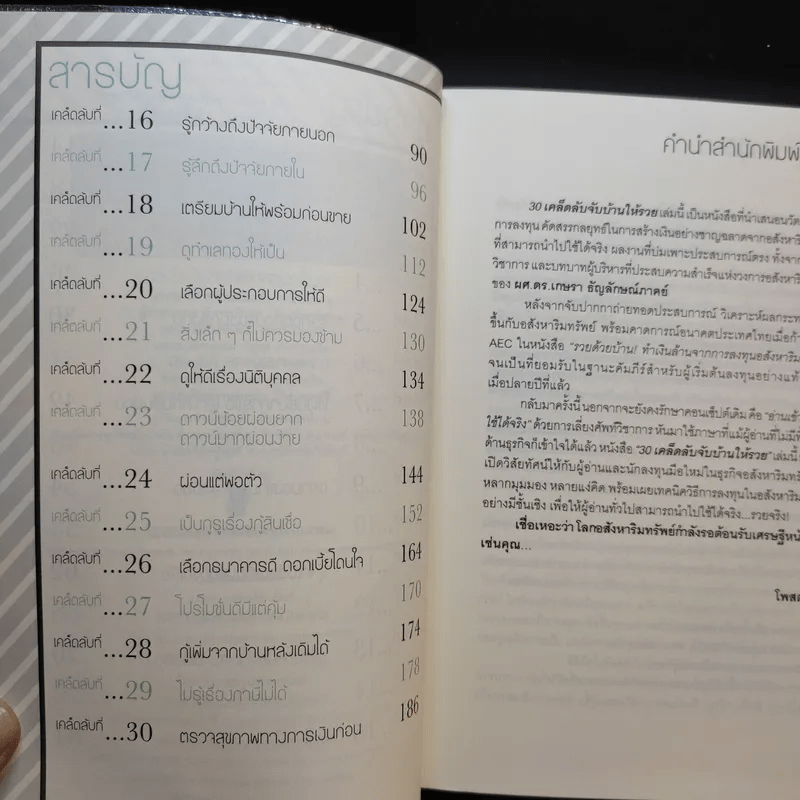 สารบัญ
เคล็ดลับที่ ...16 รู้กว้างถึงปัจจัยภายนอก 90
เคล็ดลับที่ ...17 รู้ลึกถึงปัจจัยภายใน 96
เคล็ดลับที่ ...18 เตรียมบ้านให้พร้อมก่อนขาย 102
เคล็ดลับที่ ...19 ดูทำเลทองให้เป็น 112
เคล็ดลับที่ ...20 เลือกผู้ประกอบการให้ดี 124
เคล็ดลับที่ ...21 สิ่งเล็ก ๆ ที่ไม่ควรมองข้าม 130
เคล็ดลับที่ ...22 ดูให้ดีเรื่องนิติบุคคล 134
เคล็ดลับที่ ...23 ดาวน์น้อยผ่อนยาก 138
ดาวน์มากผ่อนง่าย
เคล็ดลับที่ ...24 ผ่อนแต่พอตัว 144
เคล็ดลับที่ ...25 เป็นกูรูเรื่องกู้สินเชื่อ 152
เคล็ดลับที่ ...26 เลือกธนาคารดี ดอกเบี้ยโดนใจ 164
เคล็ดลับที่ ...27 โปรโมชั่นดีมีแต่คุ้ม 170
เคล็ดลับที่ ...28 กู้เพิ่มจากบ้านหลังเดิมได้ 174
เคล็ดลับที่ ...29 ไม่รู้เรื่องภาษีไม่ได้ 178
เคล็ดลับที่ ...30 ตรวจสุขภาพทางการเงินก่อน 186
คำนำสำนักพิมพ์
30 เคล็ดลับจับบ้านให้รวย เล่มนี้ เป็นหนังสือที่นำเสนอ
การลงทุน คัดสรรกลยุทธ์ในการสร้างเงินอย่างชาญฉลาดจากอสังหา
ที่สามารถนำไปใช้ได้จริง ผลงานที่บ่มเพาะประสบการณ์ตรง ทั้งจาก
วิชาการ และบทบาทผู้บริหารที่ประสบความสำเร็จแห่งวงการอสังหา
ของ ผศ.ดร.เกษรา ธัญลักษณ์ภาคย์
หลังจากจับปากกาถ่ายทอดประสบการณ์ วิเคราะห์ผลกระท
ขึ้นกับอสังหาริมทรัพย์ พร้อมคาดการณ์อนาคตประเทศไทยเมื่อ
AEC ในหนังสือ "รวยด้วยบ้าน! ทำเงินล้านจากการลงทุนอสังหาริม
จนเป็นที่ยอมรับในฐานะคัมภีร์สำหรับผู้เริ่มต้นลงทุนอย่างแท้
เมื่อปลายปีที่แล้ว
กลับมาครั้งนี้นอกจากจะยังคงรักษาคอนเซ็ปต์เดิม คือ "อ่านเข้า
ใช้ได้จริง" ด้วยการเลี่ยงศัพท์วิชาการ หันมาใช้ภาษาที่แม้ผู้อ่านที่ไม่มี
ด้านธุรกิจก็เข้าใจได้แล้ว หนังสือ "30 เคล็ดลับจับบ้านให้รวย" เล่มนี้
เปิดวิสัยทัศน์ให้กับผู้อ่านและนักลงทุนมือใหม่ในธุรกิจอสังหาริมทรั
หลากมุมมอง หลายแง่คิด พร้อมเผยเทคนิควิธีการลงทุนในอสังหาริม
อย่างมีชั้นเชิง เพื่อให้ผู้อ่านทั่วไปสามารถนำไปใช้ได้จริง...รวยจริง!
เชื่อเหอะว่า โลกอสังหาริมทรัพย์กำลังรอต้อนรับเศรษฐีหน้
เช่นคุณ...
โพส